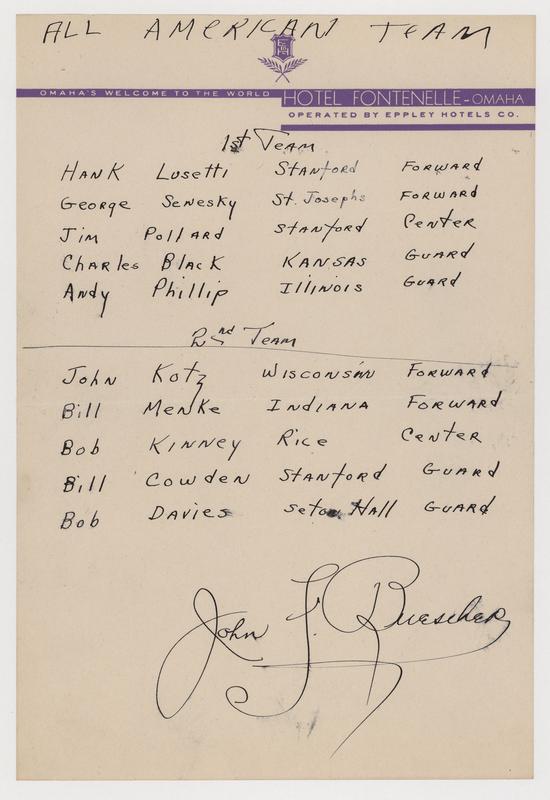 ALL AMERICAN TEAM
OMAHA'S WELCOME TO THE WORLD
HOTEL FONTENELLE - OMAHA
OPERATED BY EPPLEY HOTELS CO.
1st Team
Hank Lusetti Stanford Forward
George Senesky St. Josephs Forward
Jim Pollard Stanford Center
Charles Black Kansas Guard
Andy Phillip Illinois Guard
2nd Team
John Kotz Wisconsin Forward
Bill Menke Indiana Forward
Bob Kinney Rice Center
Bill Cowden Stanford Guard
Bob Davies Seton Hall Guard
John F. Buescher